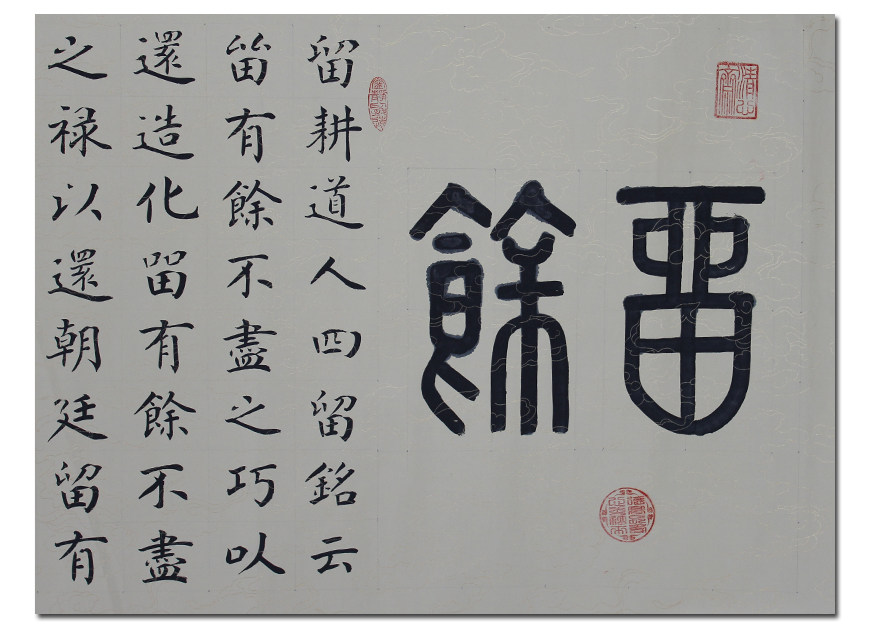 留餘
留耕道人四留銘云
留有餘不盡之巧以
還造化留有餘不盡
之禄以還朝廷留有